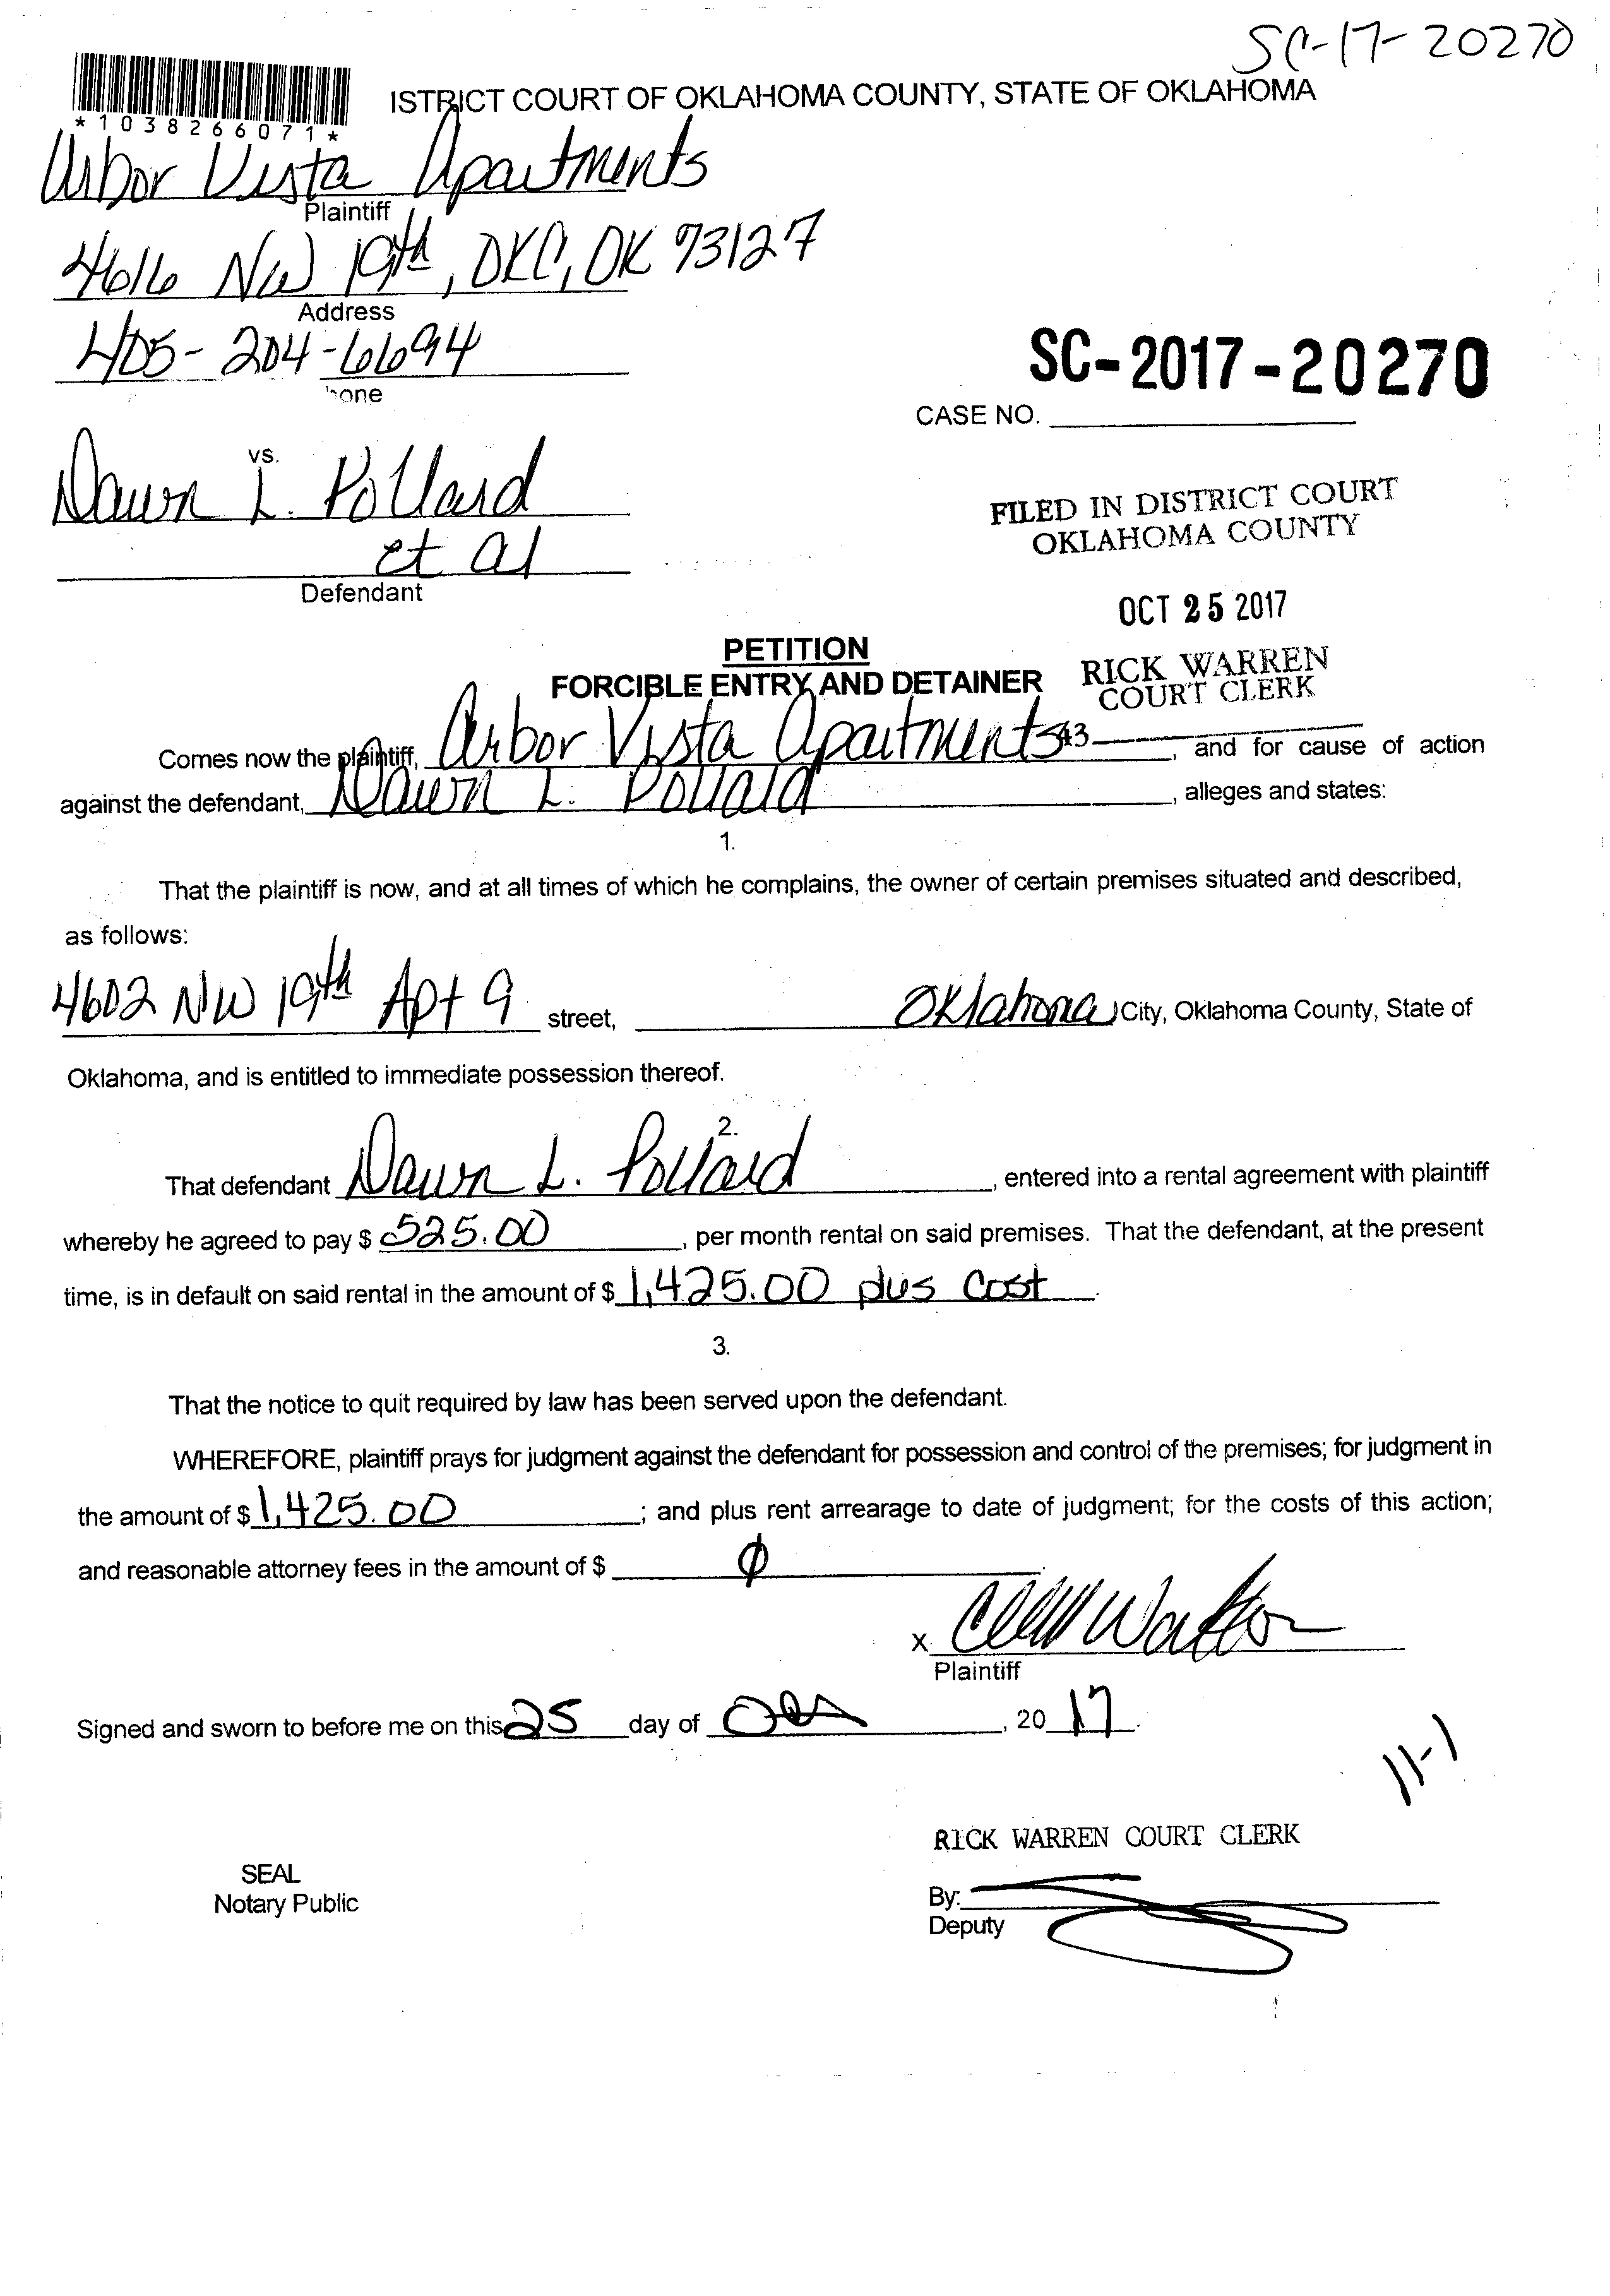 SC-17-20270
*1038266071*
ISTRICT COURT OF OKLAHOMA COUNTY, STATE OF OKLAHOMA
Arbor Vista Apartments
Plaintiff
4616 NW 19th, OKC, OK 73127
Address
405-204-6694
one
SC-2017-20270
CASE NO.
vs.
Dawn L. Pollard
et al
Defendant
FILED IN DISTRICT COURT
OKLAHOMA COUNTY
OCT 25 2017
PETITION
FORCIBLE ENTRY AND DETAINER
RICK WARREN
COURT CLERK
43
Comes now the plaintiff, Arbor Vista Apartments, and for cause of action
against the defendant, Dawn L. Pollard, alleges and states:
1.
That the plaintiff is now, and at all times of which he complains, the owner of certain premises situated and described,
as follows:
4602 NW 19th Apt 9 street, Oklahoma City, Oklahoma County, State of
Oklahoma, and is entitled to immediate possession thereof.
2.
That defendant Dawn L. Pollard, entered into a rental agreement with plaintiff
whereby he agreed to pay $ 525.00, per month rental on said premises. That the defendant, at the present
time, is in default on said rental in the amount of $ 1,425.00 plus cost.
3.
That the notice to quit required by law has been served upon the defendant.
WHEREFORE, plaintiff prays for judgment against the defendant for possession and control of the premises; for judgment in
the amount of $ 1,425.00; and plus rent arrearage to date of judgment; for the costs of this action;
and reasonable attorney fees in the amount of $ ϕ.
x
Plaintiff
Signed and sworn to before me on this 25 day of Oct, 20 17.
11-1
RICK WARREN COURT CLERK
SEAL
Notary Public
By:
Deputy